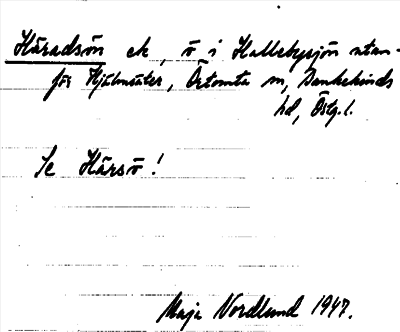 Häradsön ek, ö i Hallebysjön utan-
för Hjälmsäter, Örtomta sn, Bankekinds
hd, Östg.l.
Se Härsö!
Maja Nordlund 1947.